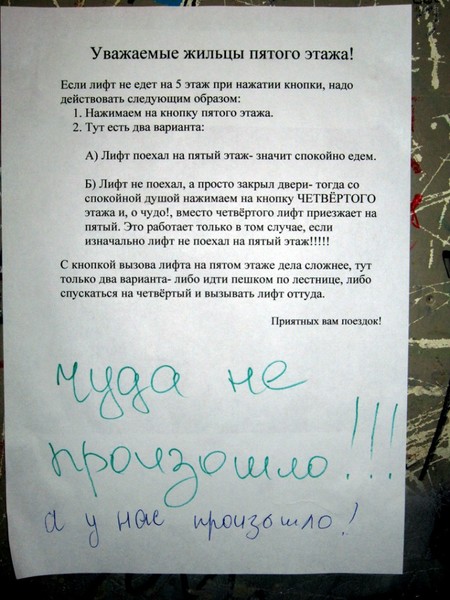 Уважаемые жильцы пятого этажа!
Если лифт не едет на 5 этаж при нажатии кнопки, надо
действовать следующим образом:
1. Нажимаем на кнопку пятого этажа.
2. Тут есть два варианта:
А) Лифт поехал на пятый этаж- значит спокойно едем.
Б) Лифт не поехал, а просто закрыл двери- тогда со
спокойной душой нажимаем на кнопку ЧЕТВЁРТОГО
этажа и, о чудо!, вместо четвёртого лифт приезжает на
пятый. Это работает только в том случае, если
изначально лифт не поехал на пятый этаж!!!!!
С кнопкой вызова лифта на пятом этаже дела сложнее, тут
только два варианта- либо идти пешком по лестнице, либо
спускаться на четвёртый и вызывать лифт оттуда.
Приятных вам поездок!
чуда не
произошло!!!
а у нас произошло!